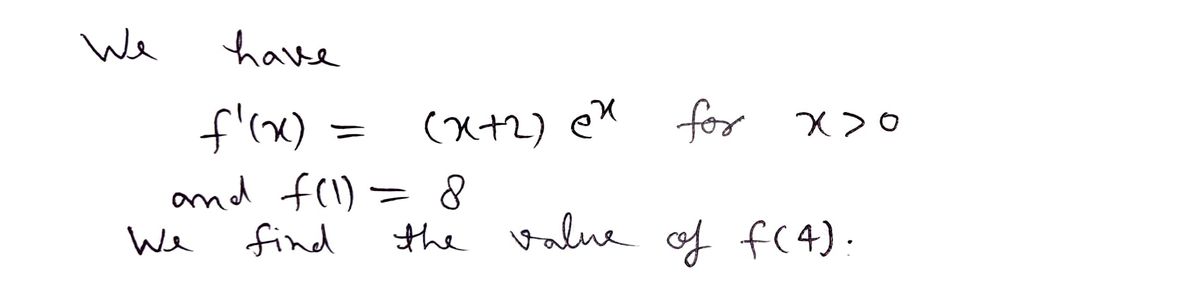 We have
f'(x) = (x+2) e^x for x>0
and f(1) = 8
We find the value of f(4).